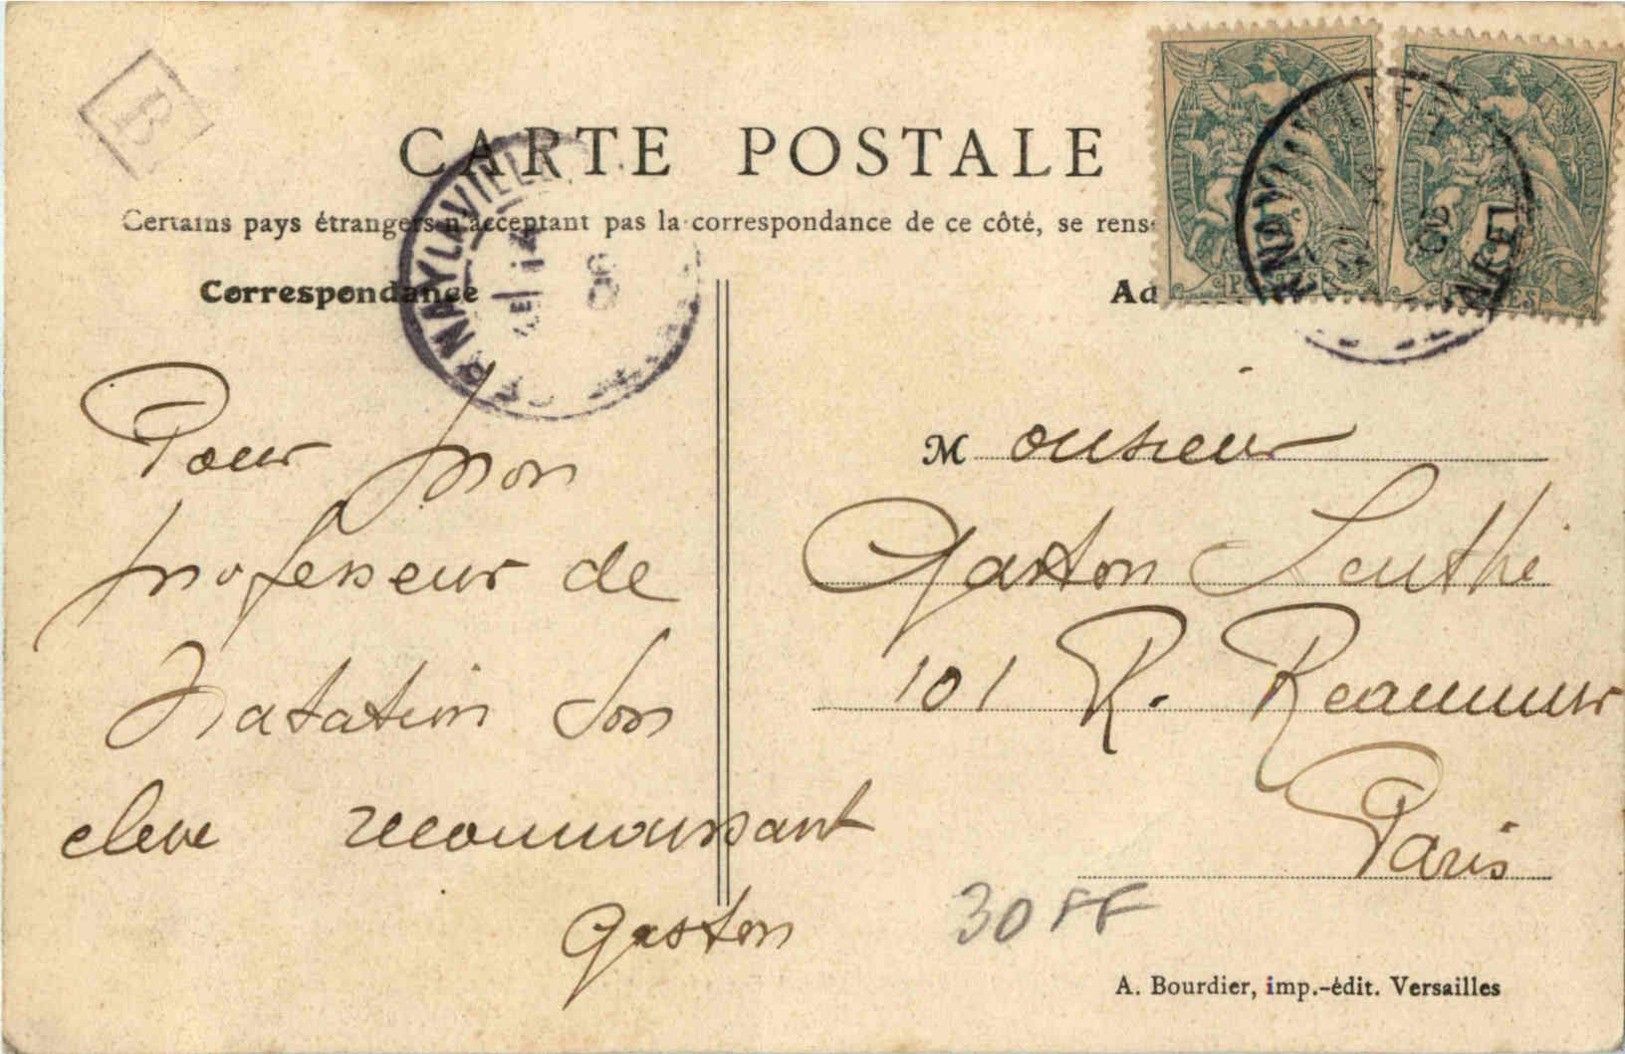 B
CARTE POSTALE
Certains pays étrangers n'acceptant pas la correspondance de ce côté, se rens
Correspondance
Ad
Pour mon
professeur de
Natation Son
eleve reconnaissant
Gaston
Monsieur
Gaston
101 R. Reaumur
Paris
30 FF
A. Bourdier, imp.-édit. Versailles